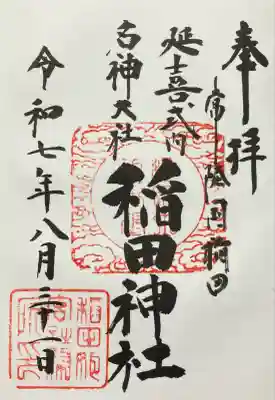 奉拝
常陸国稲田
延喜式内
名神大社
稲田神社
令和七年八月三十一日